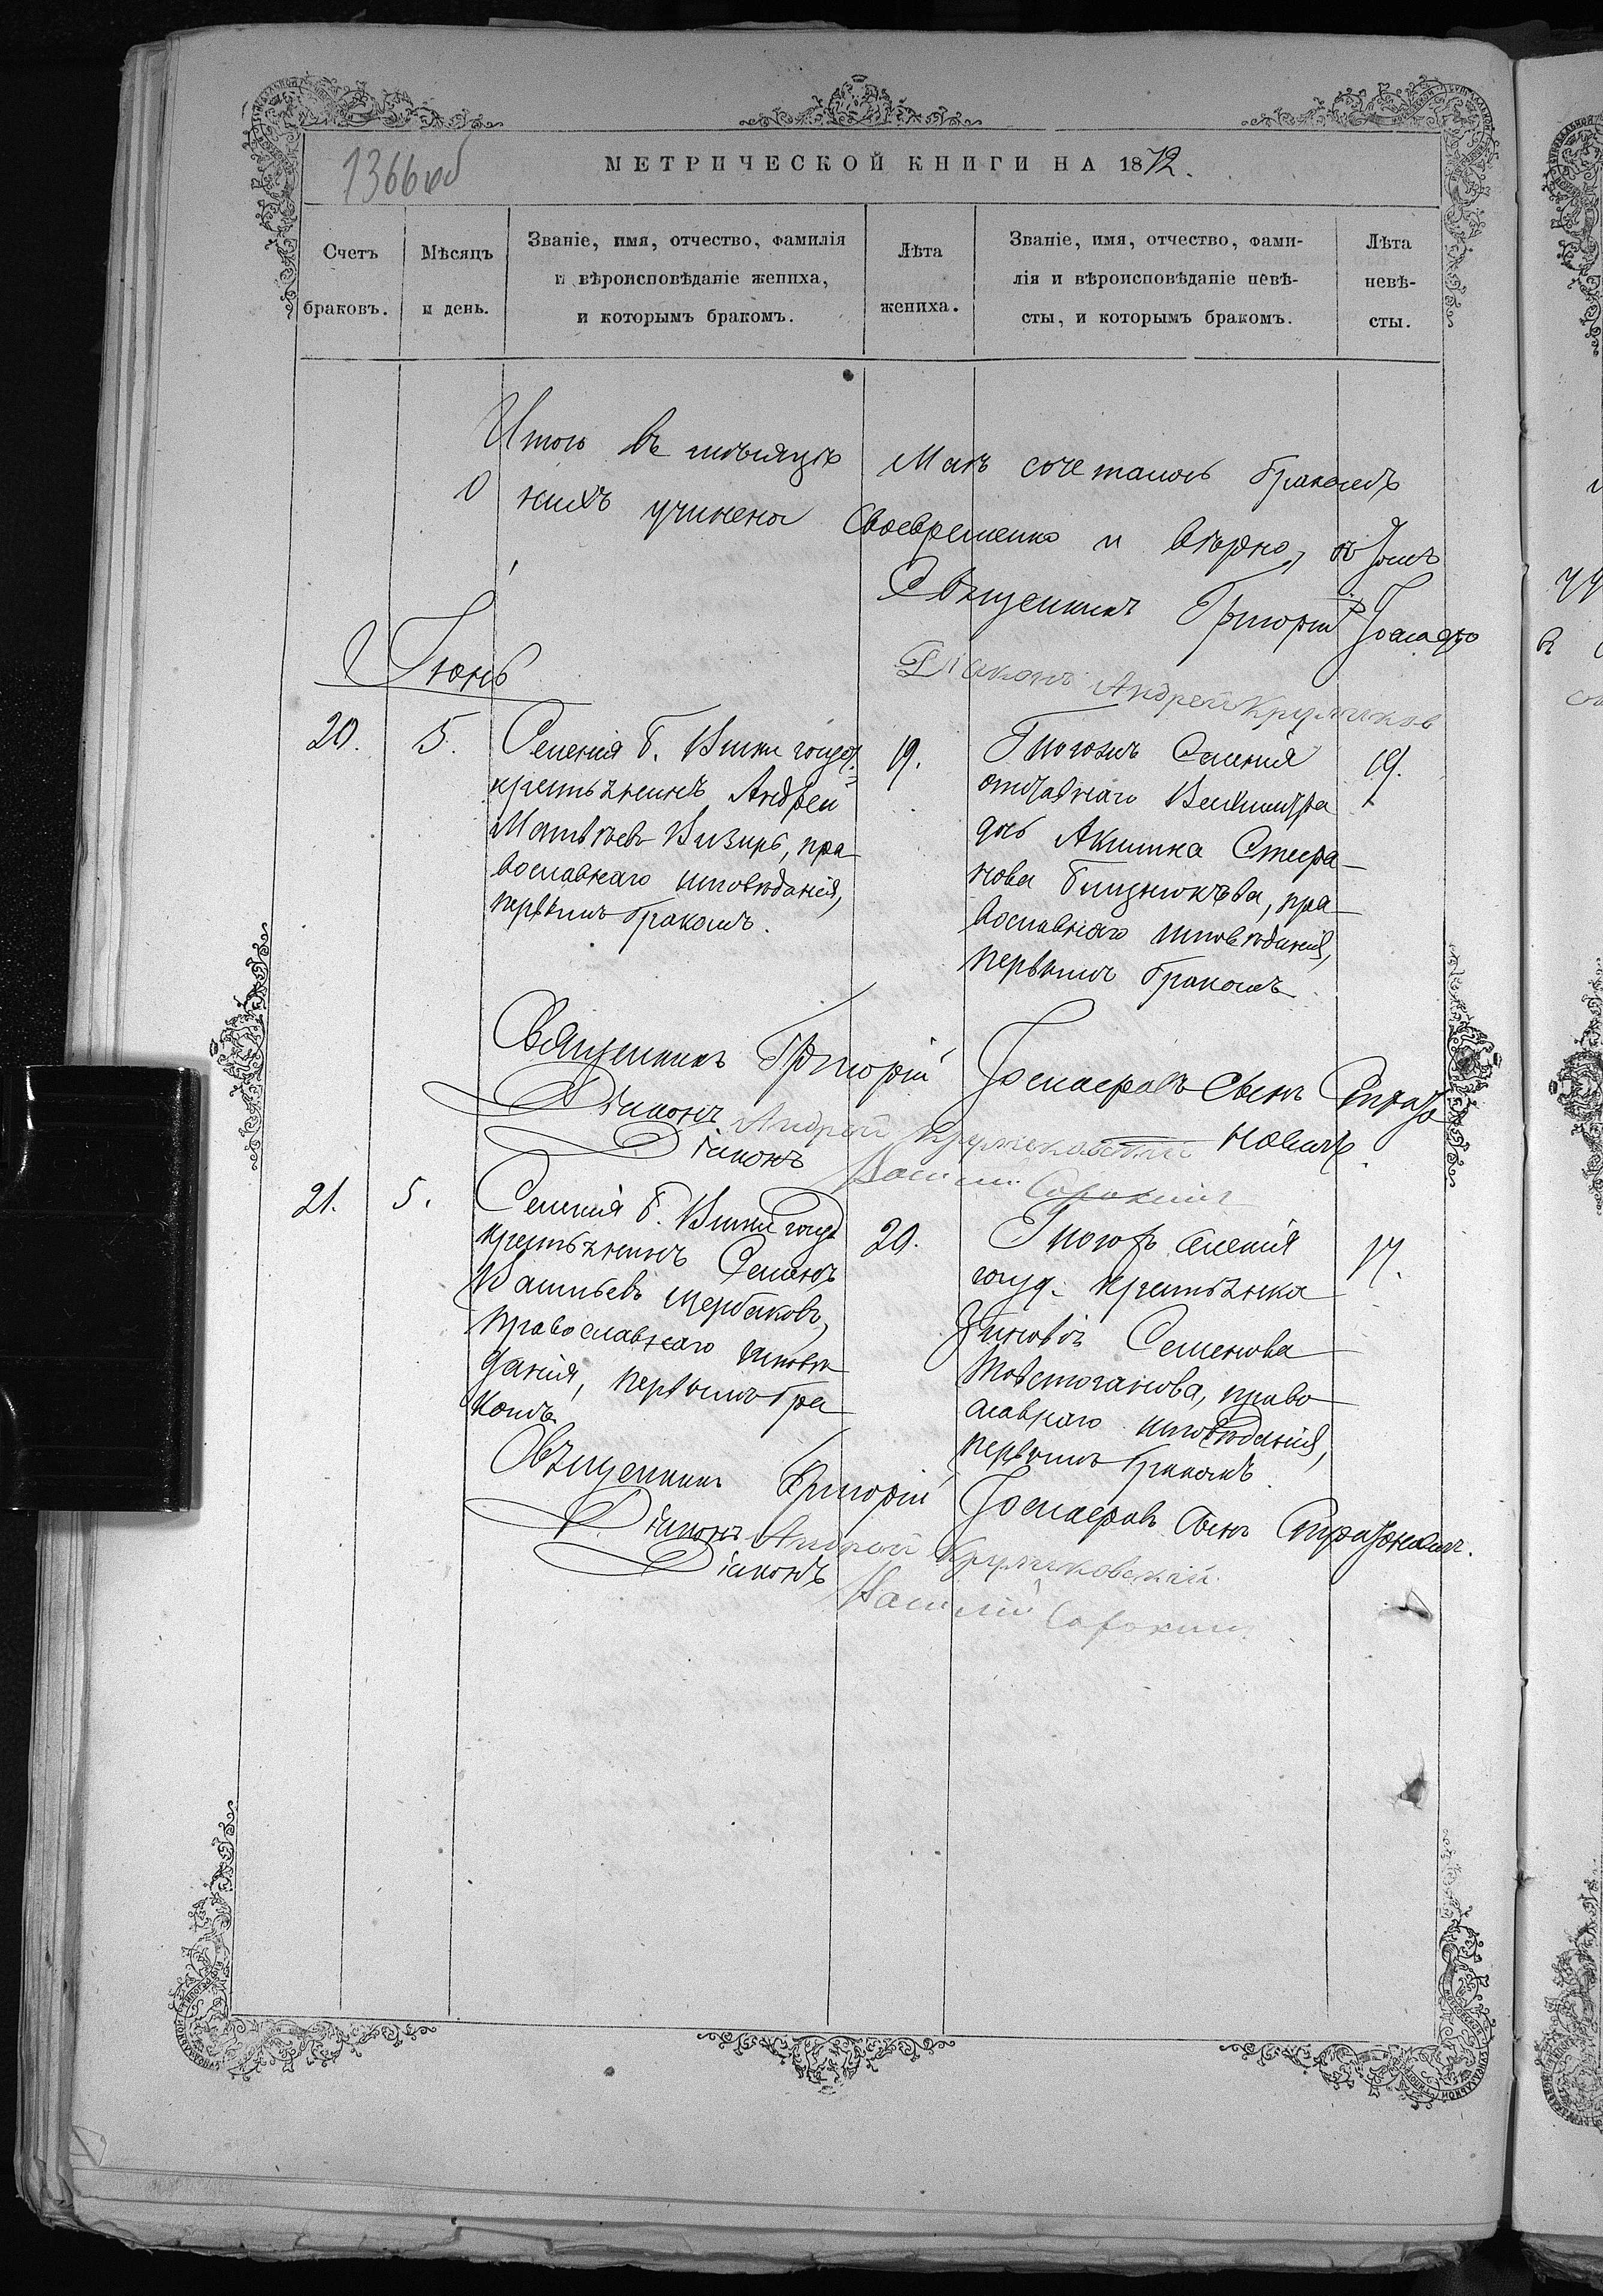 1366 об
МЕТРИЧЕСКОЙ КНИГИ НА 1872.
Счетъ браковъ.
Мѣсяцъ и день.
Званіе, имя, отчество, фамилія
и вѣроисповѣданіе жениха,
и которымъ бракомъ.
Лѣта
жениха.
Званіе, имя, отчество, фами-
лія и вѣроисповѣданіе невѣ-
сты, и которымъ бракомъ.
Лѣта
невѣ-
сты.
Итого въ мѣсяцѣ Маѣ сочеталось бракомъ
о нихъ учинена своевременно и вѣрно, въ томъ
Священникъ Григорій
Діаконъ Андрей
Іюнь
20. 5.
Селенія Б. Виски госуд.
крестьянинъ Андрей
Матвѣевъ Визирь, пра-
вославнаго исповѣданія,
первымъ бракомъ.
19.
Тогожъ Селенія
отставнаго
дочь Акилина Стефа-
нова Близнюкова, пра-
вославнаго исповѣданія,
первымъ бракомъ
19.
Священникъ Григорій
Діаконъ Андрей
Діаконъ Василій Сорокинъ
21. 5.
Селенія Б. Виски госуд
крестьянинъ Семенъ
Васильевъ Щербаковъ,
православнаго исповѣ
данія, первымъ бра
комъ.
20.
Тогожъ селенія
госуд. крестьянка
Зиновія Семенова
Товстоганова, право
славнаго исповѣданія,
первымъ бракомъ
17.
Священникъ Григорій
Діаконъ Андрей
Діаконъ Василій Сорокинъ